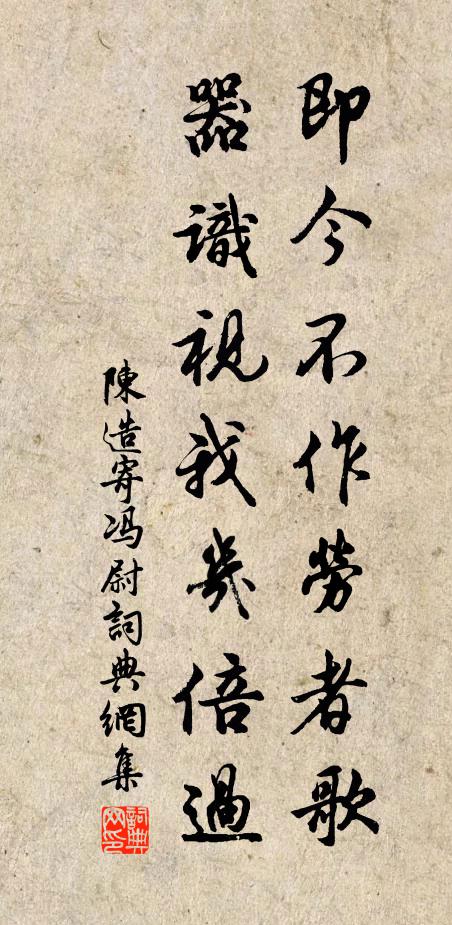 即今不作勞者歌
器識視我幾倍過
陳造寄馮尉詞典網集
詞典網印